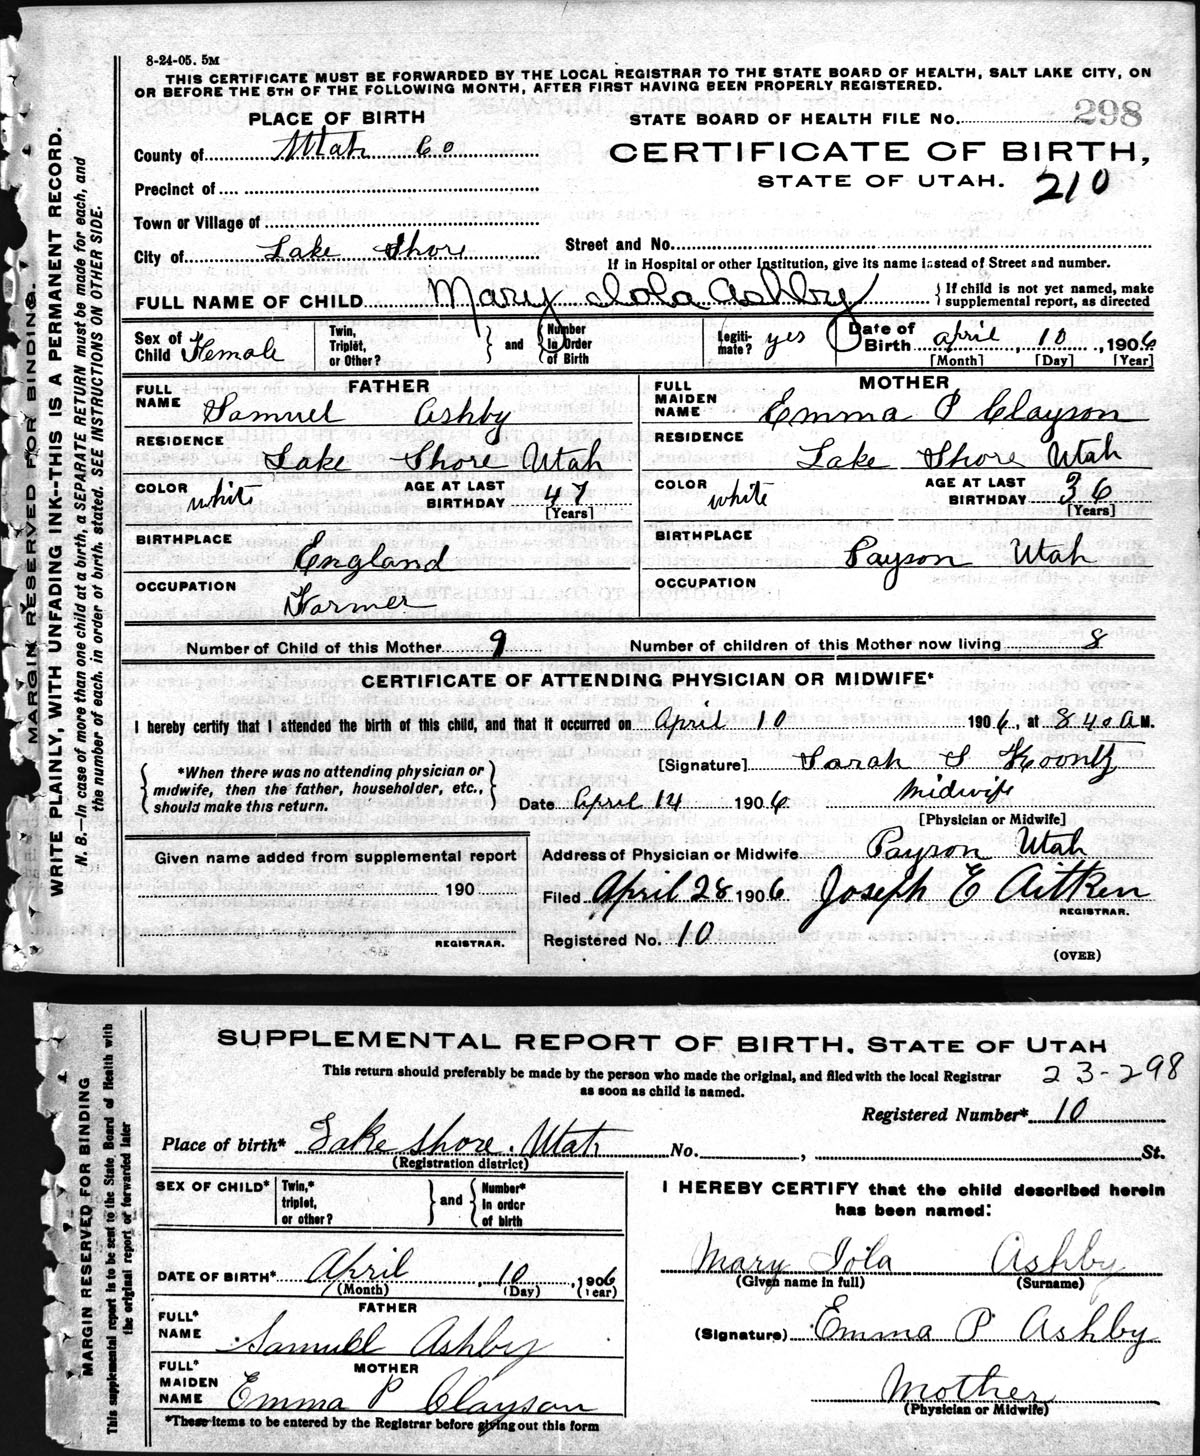 8-24-05. 5M
THIS CERTIFICATE MUST BE FORWARDED BY THE LOCAL REGISTRAR TO THE STATE BOARD OF HEALTH, SALT LAKE CITY, ON
OR BEFORE THE 5TH OF THE FOLLOWING MONTH, AFTER FIRST HAVING BEEN PROPERLY REGISTERED.
PLACE OF BIRTH
STATE BOARD OF HEALTH FILE No. 298
County of Utah Co
CERTIFICATE OF BIRTH,
STATE OF UTAH. 210
Precinct of
Town or Village of
City of Lake Shore
Street and No.
If in Hospital or other Institution, give its name instead of Street and number.
FULL NAME OF CHILD Mary Iola Ashby { If child is not yet named, make supplemental report, as directed
Sex of Child Female
Twin, Triplet, or Other? } and { Number In Order of Birth
Legitimate? yes
Date of Birth April 10, 1906
[Month] [Day] [Year]
FATHER
FULL NAME Samuel Ashby
RESIDENCE Lake Shore Utah
COLOR white AGE AT LAST BIRTHDAY 47 [Years]
BIRTHPLACE England
OCCUPATION Farmer
MOTHER
FULL MAIDEN NAME Emma P Clayson
RESIDENCE Lake Shore Utah
COLOR white AGE AT LAST BIRTHDAY 36 [Years]
BIRTHPLACE Payson Utah
OCCUPATION
Number of Child of this Mother 9 Number of children of this Mother now living 8
CERTIFICATE OF ATTENDING PHYSICIAN OR MIDWIFE*
I hereby certify that I attended the birth of this child, and that it occurred on April 10 1906, at 8.40 A M.
{ *When there was no attending physician or midwife, then the father, householder, etc., should make this return. }
[Signature] Sarah S Koontz
Date April 14 1906 Midwife
[Physician or Midwife]
Given name added from supplemental report
190
REGISTRAR.
Address of Physician or Midwife Payson Utah
Filed April 28 1906 Joseph E Aitken
REGISTRAR.
Registered No. 10
(OVER)
MARGIN RESERVED FOR BINDING.
WRITE PLAINLY, WITH UNFADING INK--THIS IS A PERMANENT RECORD.
N. B.—In case of more than one child at a birth, a SEPARATE RETURN must be made for each, and
the number of each, in order of birth, stated. SEE INSTRUCTIONS ON OTHER SIDE.
SUPPLEMENTAL REPORT OF BIRTH, STATE OF UTAH
This return should preferably be made by the person who made the original, and filed with the local Registrar
as soon as child is named.
23-298
Registered Number* 10
Place of birth* Lake Shore. Utah No. , St.
(Registration district)
SEX OF CHILD* Twin,* triplet, or other? } and { Number* in order of birth
DATE OF BIRTH* April, 10, 1906
(Month) (Day) (Year)
FATHER
FULL* NAME Samuel Ashby
MOTHER
FULL* MAIDEN NAME Emma P Clayson
*These items to be entered by the Registrar before giving out this form
I HEREBY CERTIFY that the child described herein
has been named:
Mary Iola Ashby
(Given name in full) (Surname)
(Signature) Emma P Ashby
Mother
(Physician or Midwife)
MARGIN RESERVED FOR BINDING
This supplemental report to be sent to the State Board of Health with
the original report or forwarded later